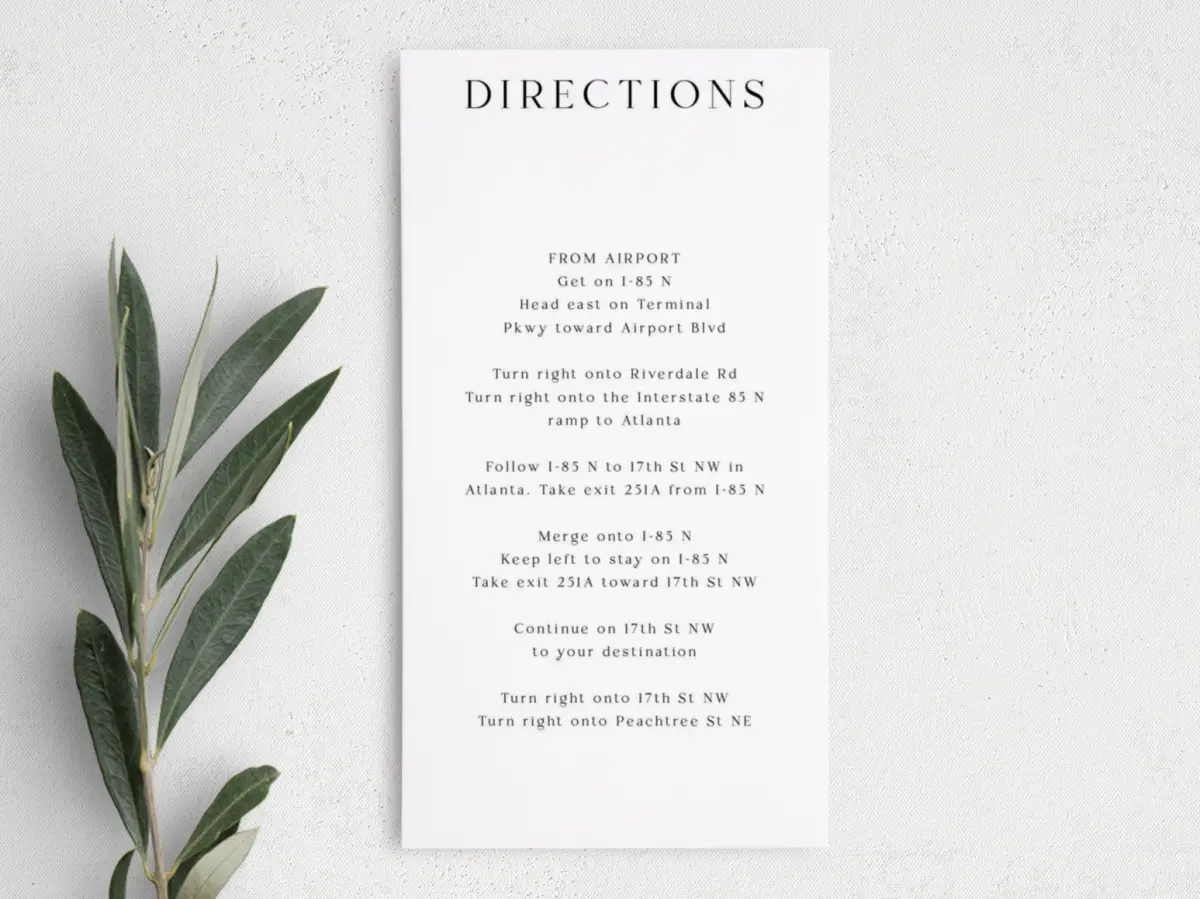 DIRECTIONS
FROM AIRPORT
Get on I-85 N
Head east on Terminal
Pkwy toward Airport Blvd
Turn right onto Riverdale Rd
Turn right onto the Interstate 85 N
ramp to Atlanta
Follow I-85 N to 17th St NW in
Atlanta. Take exit 251A from I-85 N
Merge onto I-85 N
Keep left to stay on I-85 N
Take exit 251A toward 17th St NW
Continue on 17th St NW
to your destination
Turn right onto 17th St NW
Turn right onto Peachtree St NE